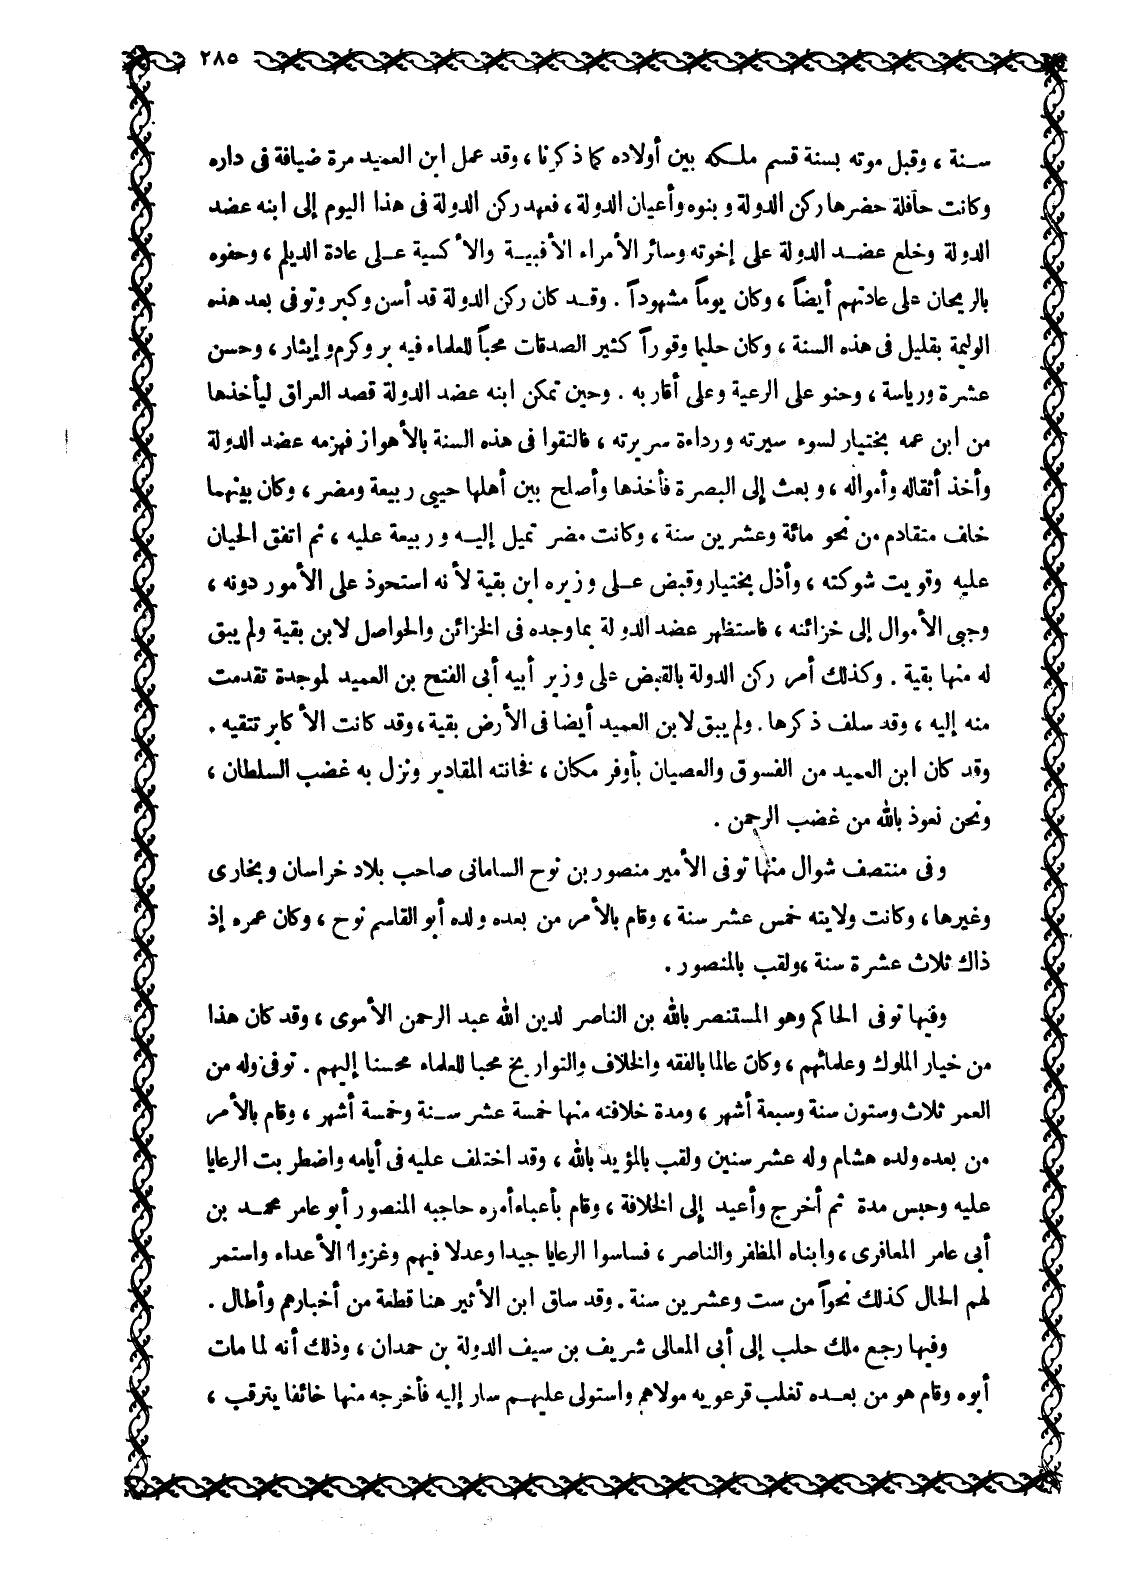 ٢٨٥
سنة ، وقبل موته بسنة قسم ملكه بين أولاده كما ذكرنا ، وقد عمل ابن العميد مرة ضيافة فى داره
وكانت حافلة حضرها ركن الدولة وبنوه وأعيان الدولة ، فعهد ركن الدولة فى هذا اليوم إلى ابنه عضد
الدولة وخلع عضد الدولة على إخوته وسائر الأمراء الأقبية والأكسية على عادة الديلم ، وحفوه
بالريحان على عادتهم أيضاً ، وكان يوماً مشهوداً . وقد كان ركن الدولة قد أسن وكبر وتوفى بعد هذه
الوليمة بقليل فى هذه السنة ، وكان حليما وقوراً كثير الصدقات محباً للعلماء فيه بر وكرم وإيثار ، وحسن
عشرة ورياسة ، وحنو على الرعية وعلى أقاربه . وحين تمكن ابنه عضد الدولة قصد العراق ليأخذها
من ابن عمه بختيار لسوء سيرته ورداءة سريرته ، فالتقوا فى هذه السنة بالأهواز فهزمه عضد الدولة
وأخذ أثقاله وأمواله ، وبعث إلى البصرة فأخذها وأصلح بين أهلها حيى ربيعة ومضر ، وكان بينهما
خلف متقادم من نحو مائة وعشرين سنة ، وكانت مضر تميل إليه وربيعة عليه ، ثم اتفق الحيان
عليه وقويت شوكته ، وأذل بختيار وقبض على وزيره ابن بقية لأنه استحوذ على الأمور دونه ،
وجبى الأموال إلى خزائنه ، فاستظهر عضد الدولة بما وجده فى الخزائن والحواصل لابن بقية ولم يبق
له منها بقية . وكذلك أمر ركن الدولة بالقبض على وزير أبيه أبى الفتح بن العميد لموجدة تقدمت
منه إليه ، وقد سلف ذكرها . ولم يبق لابن العميد أيضا فى الأرض بقية ، وقد كانت الأكابر تتقيه .
وقد كان ابن العميد من الفسوق والعصيان بأوفر مكان ، فخانته المقادير ونزل به غضب السلطان ،
ونحن نعوذ بالله من غضب الرحمن .
وفى منتصف شوال منها توفى الأمير منصور بن نوح السامانى صاحب بلاد خراسان وبخارى
وغيرها ، وكانت ولايته خمس عشر سنة ، وقام بالأمر من بعده ولده أبو القاسم نوح ، وكان عمره إذ
ذاك ثلاث عشرة سنة ، ولقب بالمنصور .
وفيها توفى الحاكم وهو المستنصر بالله بن الناصر لدين الله عبد الرحمن الأموى ، وقد كان هذا
من خيار الملوك وعلمائهم ، وكان عالما بالفقه والخلاف والتواريخ محبا للعلماء محسنا إليهم . توفى وله من
العمر ثلاث وستون سنة وسبعة أشهر ، ومدة خلافته منها خمسة عشر سنة وخمسة أشهر ، وقام بالأمر
من بعده ولده هشام وله عشر سنين ولقب بالمؤيد بالله ، وقد اختلف عليه فى أيامه واضطربت الرعايا
عليه وحبس مدة ثم أخرج وأعيد إلى الخلافة ، وقام بأعباء أمره حاجبه المنصور أبو عامر محمد بن
أبى عامر المعافرى ، وابناه المظفر والناصر ، فساسوا الرعايا جيدا وعدلا فيهم وغزوا الأعداء واستمر
لهم الحال كذلك نحواً من ست وعشرين سنة . وقد ساق ابن الأثير هنا قطعة من أخبارهم وأطال .
وفيها رجع ملك حلب إلى أبى المعالى شريف بن سيف الدولة بن حمدان ، وذلك أنه لما مات
أبوه وقام هو من بعده تغلب قرعويه مولاهم واستولى عليهم سار إليه فأخرجه منها خائفا يترقب ،